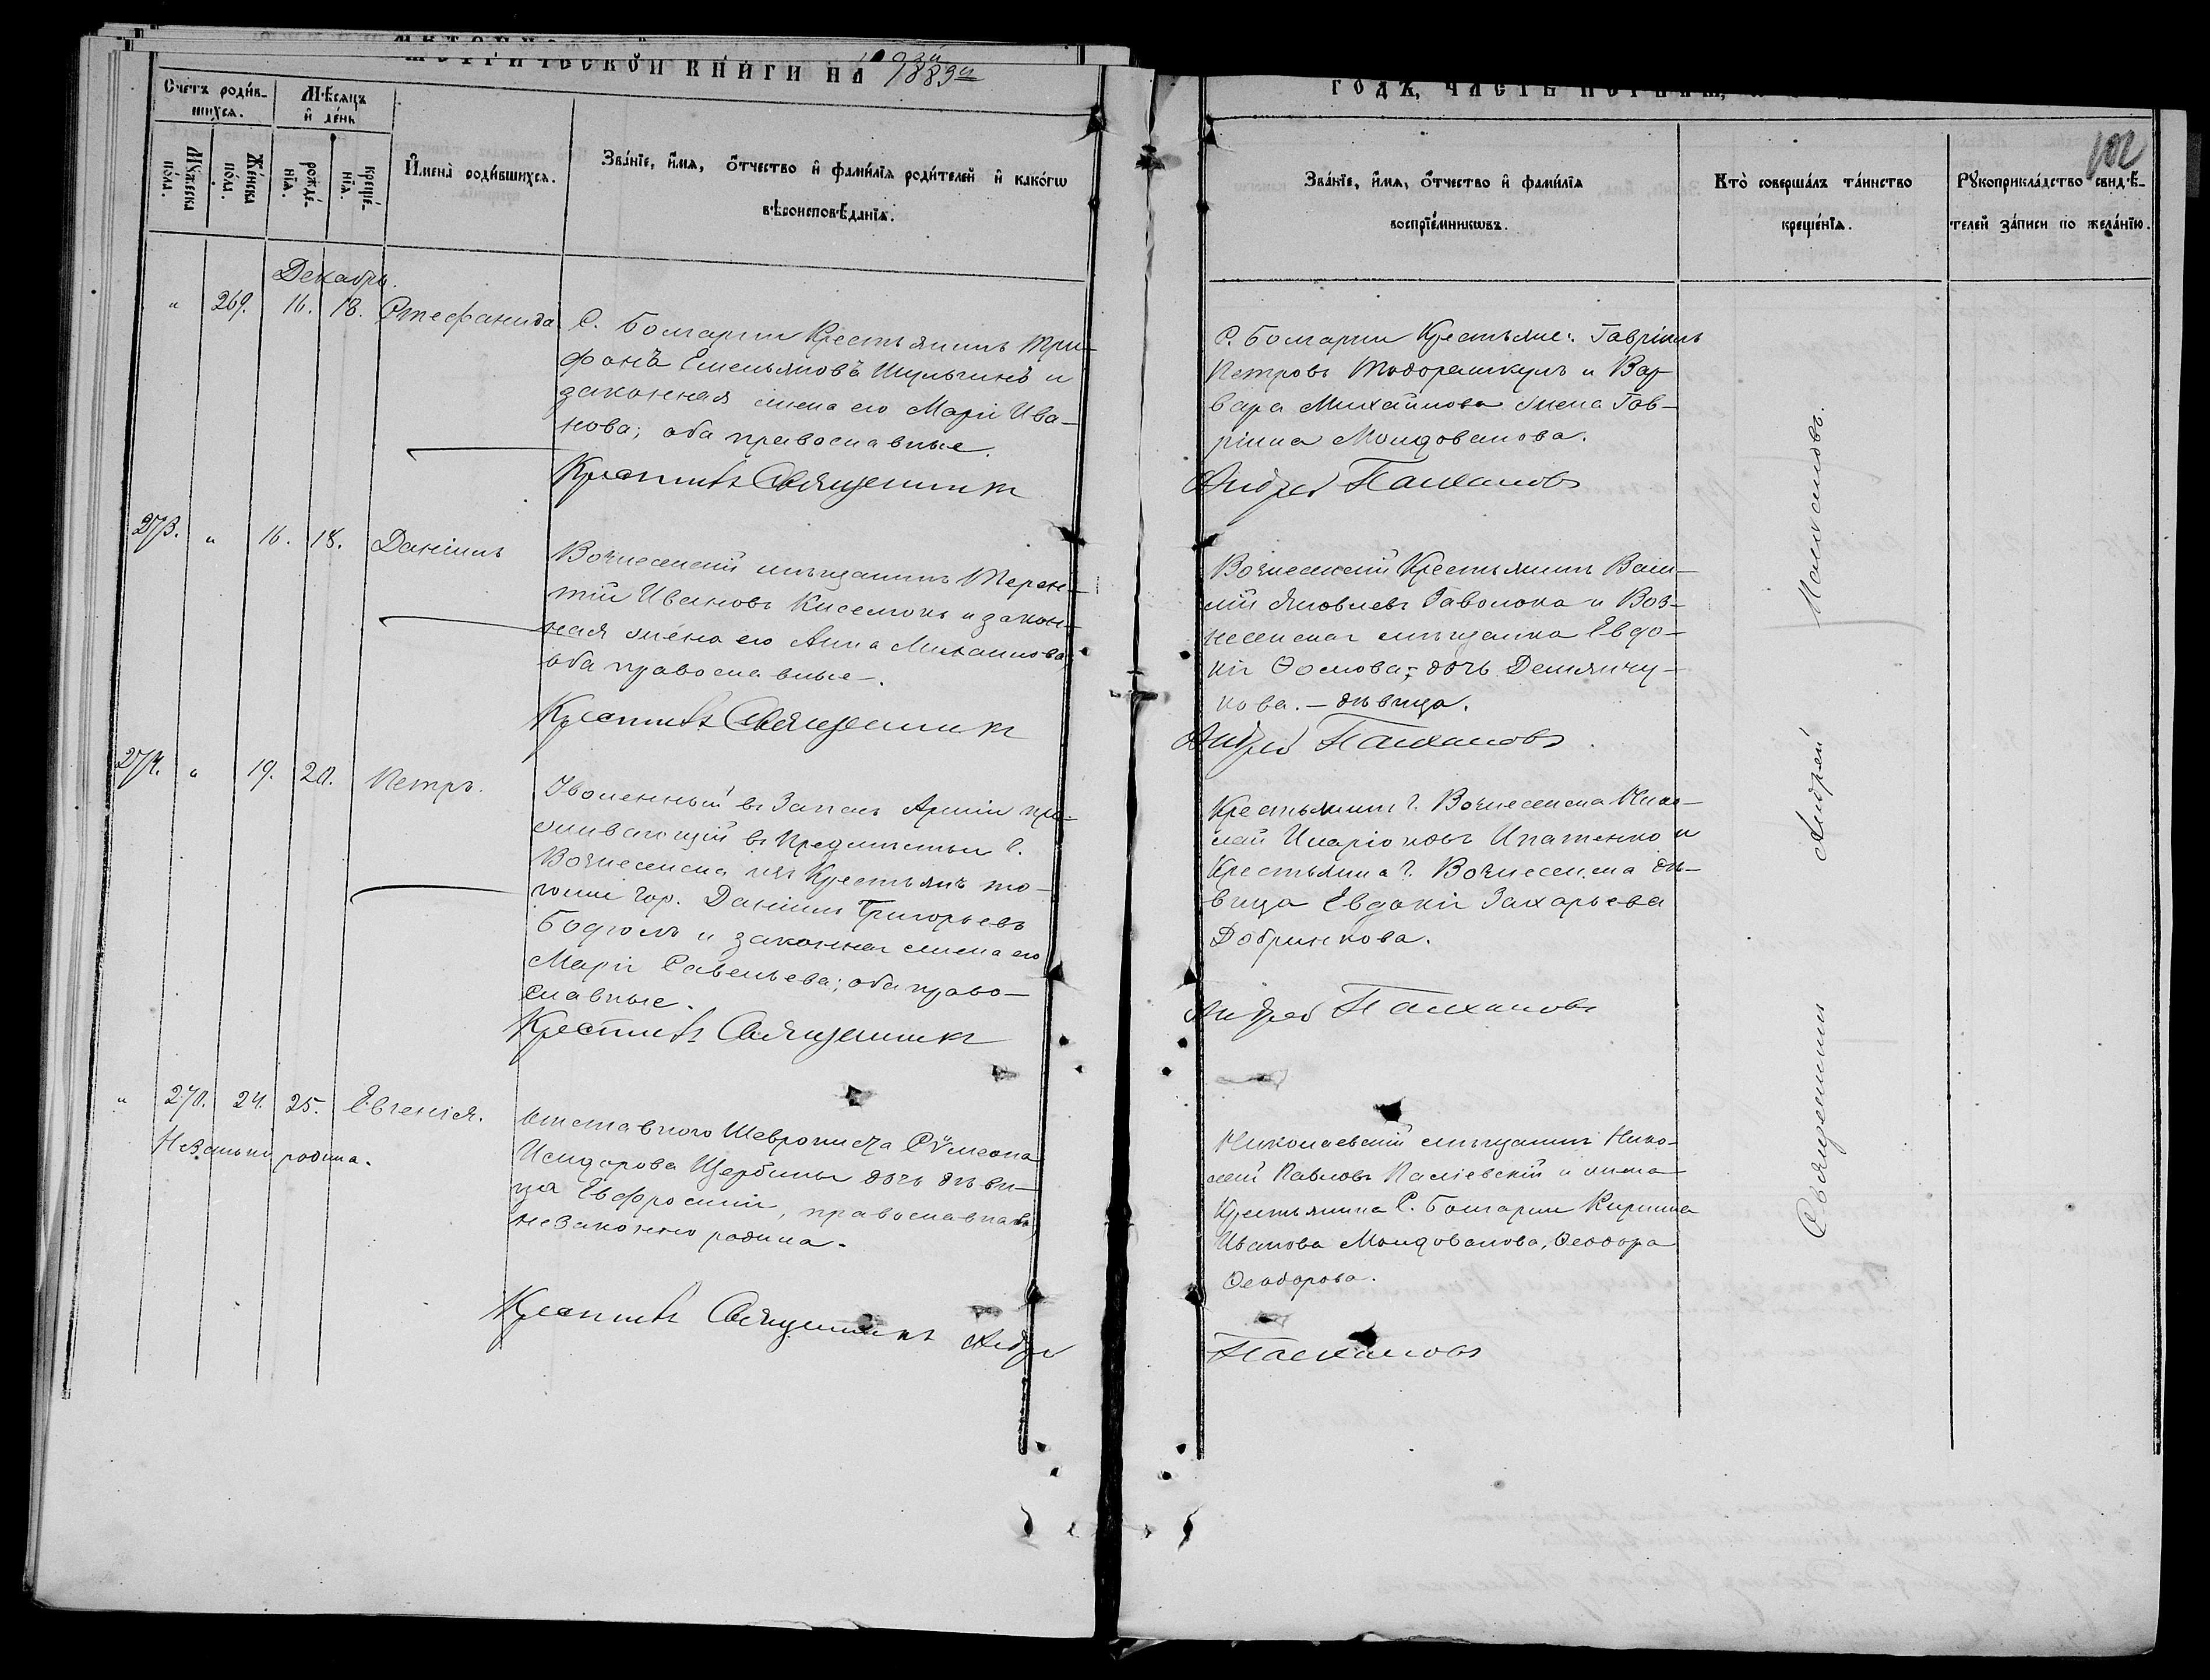 МЕТРИЧЕСКОЙ КНИГИ НА 1883й
Счетъ родив-
шихся.
Мѣсяцъ
и день
Мужеска
пола.
Женска
пола.
рожде-
нія.
креще-
нія.
Имена родившихся.
Званіе, имя, отчество и фамилія родителей и какогѡ
вѣроисповѣданія.
Декабрь.
„ 269. 16. 18. Стефанида
С. Болгарки Крестьянинъ Три-
фонъ Емельяновъ Шульгинъ и
законная жена его Марія Ива-
нова; оба православные.
Крестилъ Священникъ
273. „ 16. 18. Даніилъ
Вознесенскій мѣщанинъ Терен-
тій Ивановъ Киселюкъ и закон-
ная жена его Анна Михаилова
оба православные.
Крестилъ Священникъ
274. „ 19. 20. Петръ.
Уволенный въ Запасъ Арміи про-
живающій въ Предмѣстьи г.
Вознесенска изъ Крестьянъ то-
гоже гор. Даніилъ Григорьевъ
Бодюлъ и законная жена его
Марія Савельева; оба право-
славные.
Крестилъ Священникъ
„ 270. 24. 25. Евгенія.
Незаконно родила.
Отставного Шеврониста Сѵмеона
Исидорова Щербины дочь дѣви-
ца Евфросинія, православная,
незаконно родила.
Крестилъ Священникъ Андрей
ГОДЪ, ЧАСТЬ ПЕРВАЯ,
102
Званіе, имя, отчество и фамилія
воспріемникѡвъ.
Кто совершалъ таинство
крещенія.
Рукоприкладство свидѣ-
телей записи по желанію.
С. Болгарки Крестьяне: Гавріилъ
Петровъ Тодорашкулъ и Вар-
вара Михайлова жена Гав-
ріила Молдованова.
Андрей Палхановъ
Вознесенскій Крестьянинъ Васи-
лій Яковлевъ Заволока и Воз-
несенская мѣщанка Евдо-
кія Ѳомова; дочь Демянчу-
кова. — дѣвица.
Андрей Палхановъ
Крестьянинъ г. Вознесенска Нико-
лай Иларіоновъ Ипатенко и
Крестьянка г. Вознесенска дѣ-
вица Евдокія Захарьева
Добринкова.
Андрей Палхановъ
Николаевскій мѣщанинъ Нико-
лай Павловъ Паліевскій и жена
Крестьянина С. Болгарки Кирилла
Иванова Молдованова, Ѳеодора
Ѳеодорова.
Палхановъ
Священникъ Андрей Палхановъ.